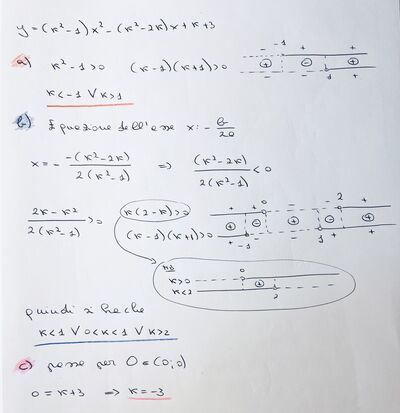 y = (k²-1)x² - (k²-2k)x + k+3
a) k²-1>0 (k-1)(k+1)>0
- -1 + +
+ - +
- - 1 +
k<-1 ∨ k>1
b) Equazione dell'asse x: - b/2a
x = - -(k²-2k)/2(k²-1) ⇒ (k²-2k)/2(k²-1) < 0
2k-k²/2(k²-1) > 0 k(2-k)>0
(k-1)(k+1)>0
+ + 0 - - 2 +
+ - + - +
+ -1 - - 1 + +
NB
0
k>0
k<2
+
2
quindi si ha che
k<1 ∨ 0<k<1 ∨ k>2
c) passa per O=(0;0)
0 = k+3 ⇒ k=-3